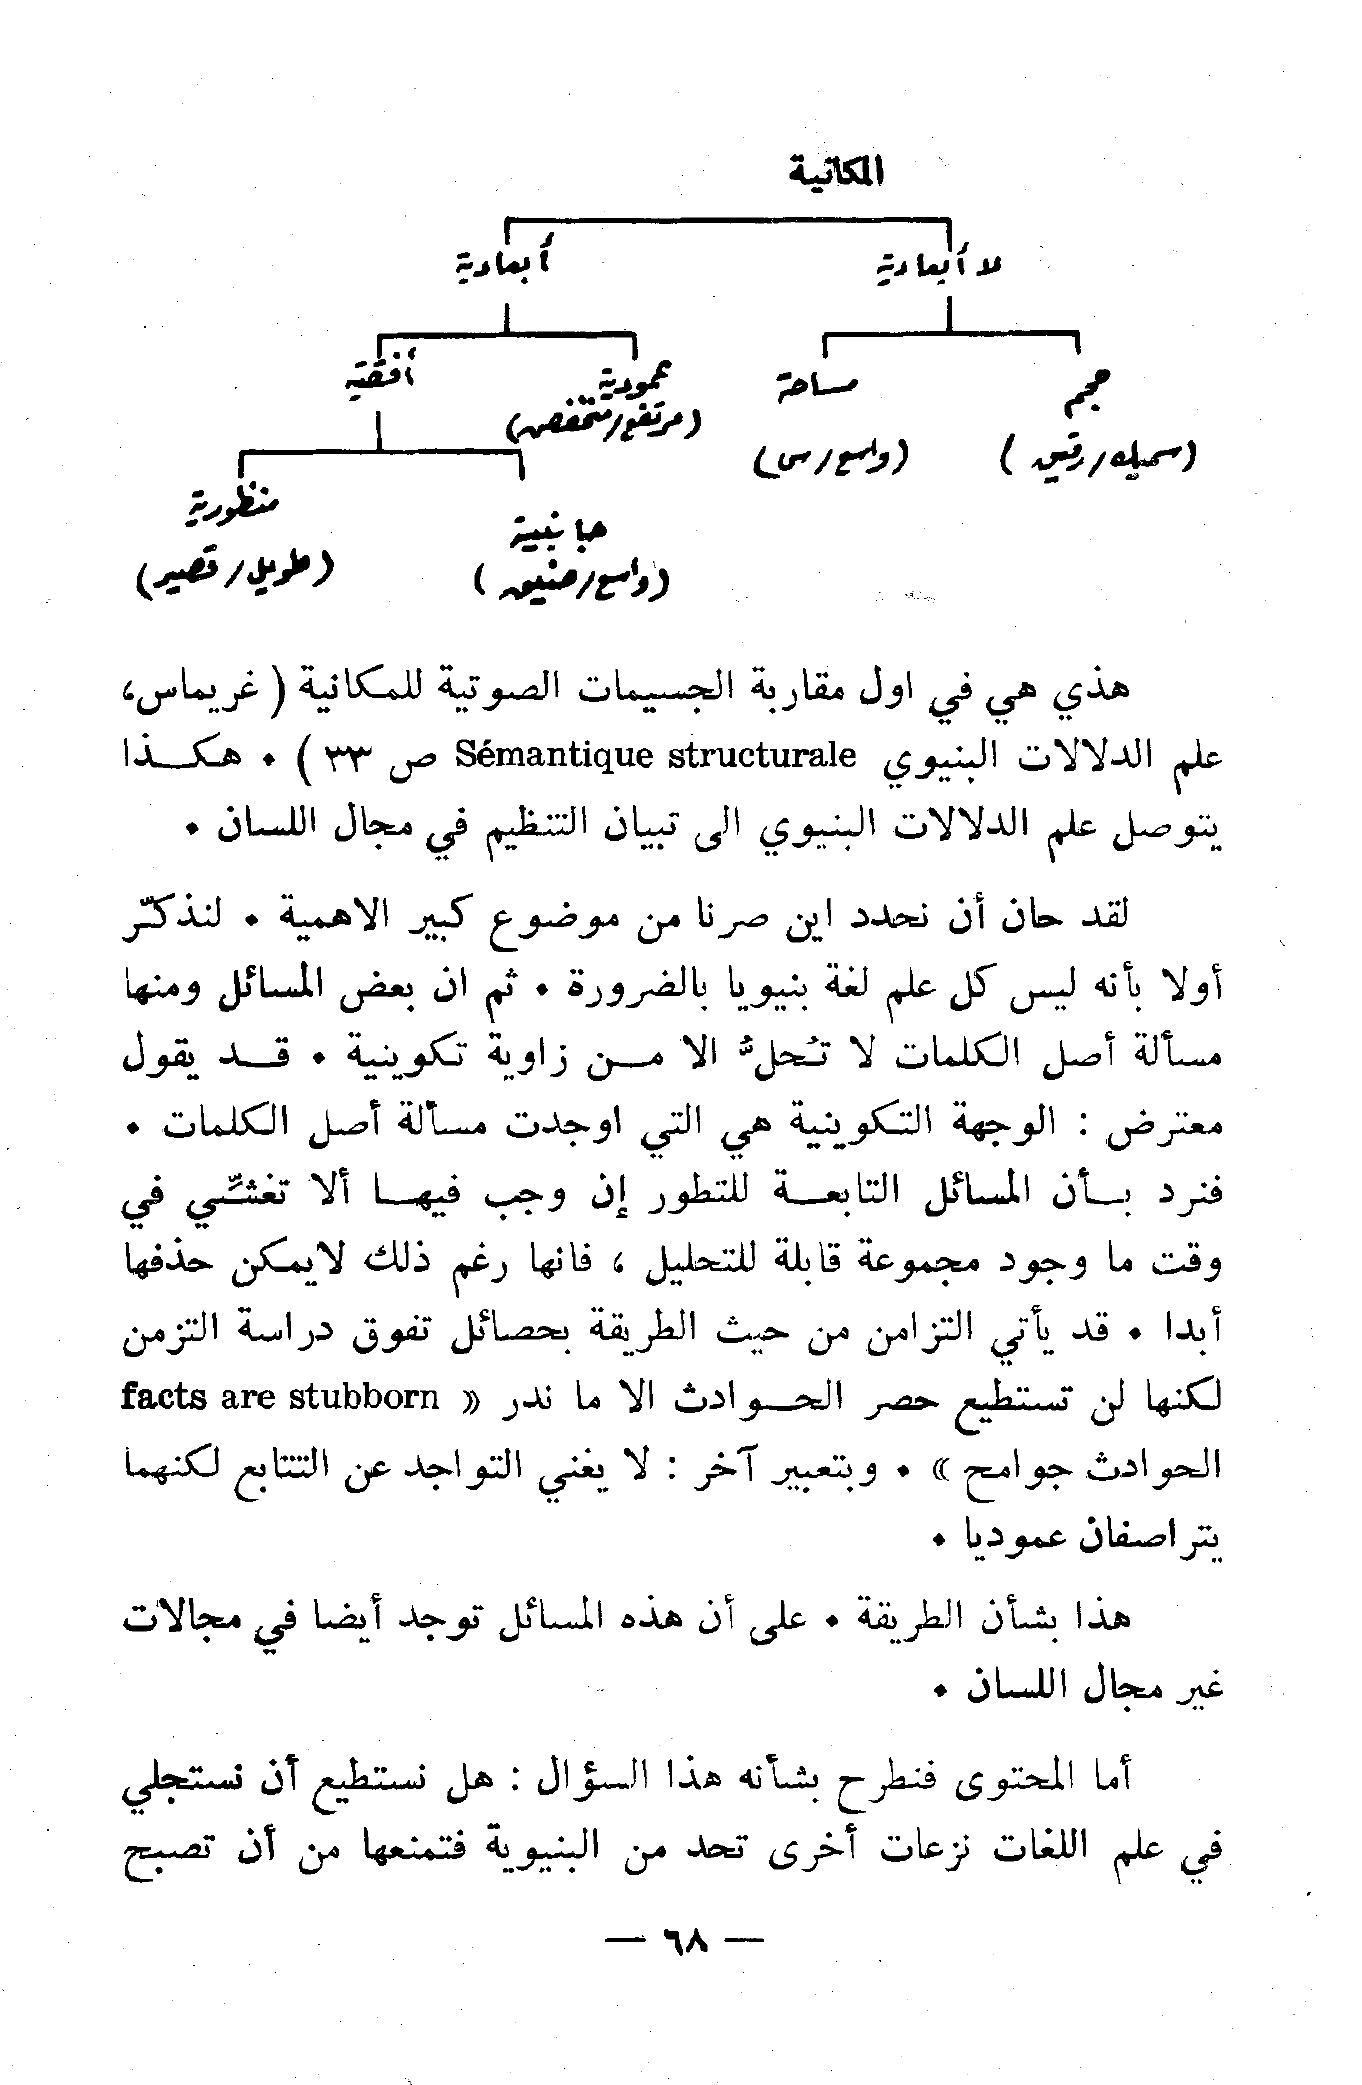 المكانية
لا أبعادية
أبعادية
حجم
مساحة
عمودية
أفقية
(سميك/رقيق)
(واسع/
(مرتفع/منخفض)
جانبية
منظورية
(واسع/ضيق)
(طويل/قصير)
هذي هي في اول مقاربة الجسيمات الصوتية للمكانية (غريماس،
علم الدلالات البنيوي Sémantique structurale ص ٣٣) ٠ هكـــذا
يتوصل علم الدلالات البنيوي الى تبيان التنظيم في مجال اللسان ٠
لقد حان أن نحدد اين صرنا من موضوع كبير الاهمية ٠ لنذكّر
أولا بأنه ليس كل علم لغة بنيويا بالضرورة ٠ ثم ان بعض المسائل ومنها
مسألة أصل الكلمات لا تُحلُّ الا مــن زاوية تكوينية ٠ قــد يقول
معترض : الوجهة التكوينية هي التي اوجدت مسألة أصل الكلمات ٠
فنرد بــأن المسائل التابعــة للتطور إن وجب فيهــا ألا تغشّي في
وقت ما وجود مجموعة قابلة للتحليل ، فانها رغم ذلك لايمكن حذفها
أبدا ٠ قد يأتي التزامن من حيث الطريقة بحصائل تفوق دراسة التزمن
لكنها لن تستطيع حصر الحــوادث الا ما ندر « facts are stubborn
الحوادث جوامح » ٠ وبتعبير آخر : لا يغني التواجد عن التتابع لكنهما
يتراصفان عموديا ٠
هذا بشأن الطريقة ٠ على أن هذه المسائل توجد أيضا في مجالات
غير مجال اللسان ٠
أما المحتوى فنطرح بشأنه هذا السؤال : هل نستطيع أن نستجلي
في علم اللغات نزعات أخرى تحد من البنيوية فتمنعها من أن تصبح
— ٦٨ —